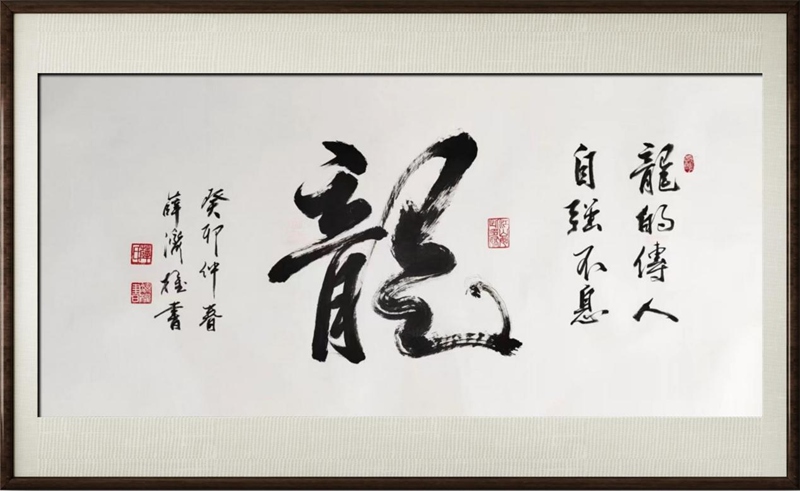 龍的傳人
自強不息
龍
癸卯仲春
薛濟雄書